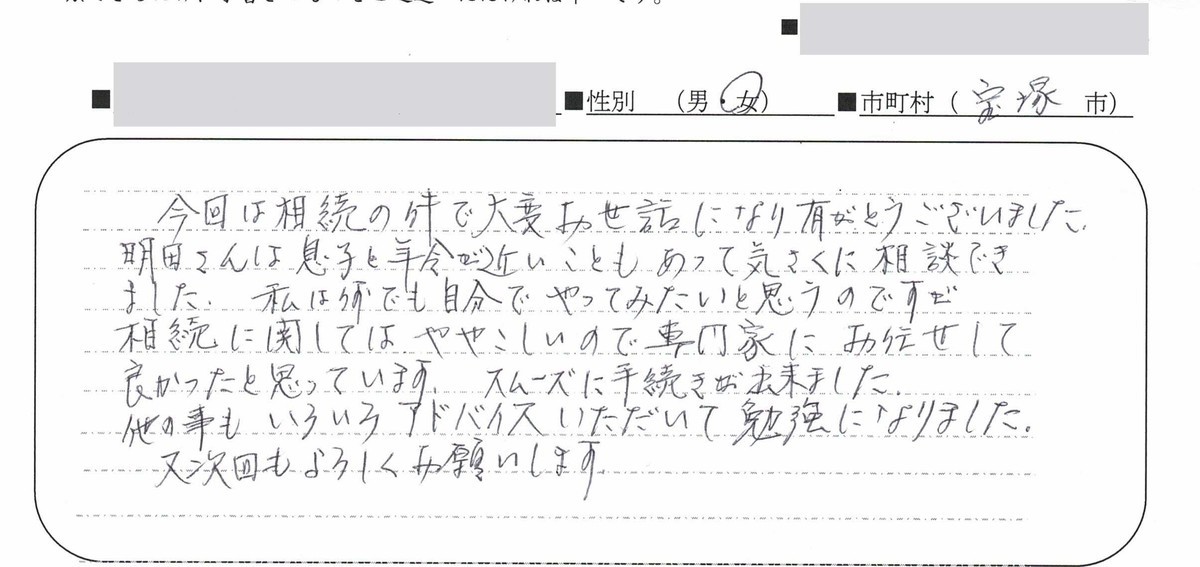 ■
■ ■性別 (男・女) ■市町村 ( 宝塚 市)
今回は相続の件で大変お世話になり有がとうございました.
明田さんは息子と年令が近いこともあって気さくに相談でき
ました. 私は何でも自分でやってみたいと思うのですが
相続に関してはややこしいので専門家にお任せして
良かったと思っています. スムーズに手続きが出来ました.
他の事もいろいろアドバイスいただいて勉強になりました.
又次回もよろしくお願いします.